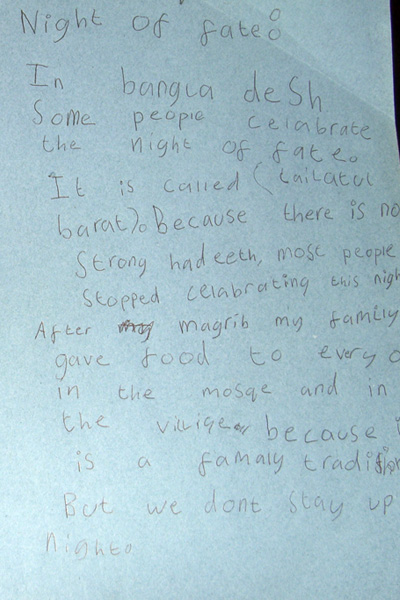 Night of fate:
In bangla desh
Some people celabrate
the night of fate.
It is called (lailatul
barat). Because there is no
Strong hadeeth, most people
Stopped celabrating this nigh
After magrib my family
gave food to every o
in the mosqe and in
the villige, because i
is a famaly tradition
But we dont stay up
night.